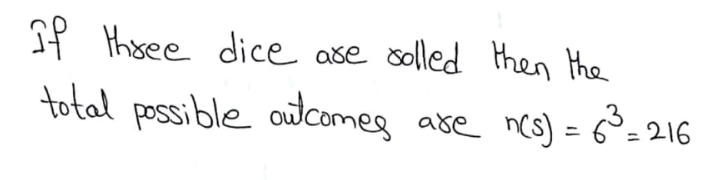 If three dice are rolled then the
total possible outcomes are n(s) = 6³ = 216